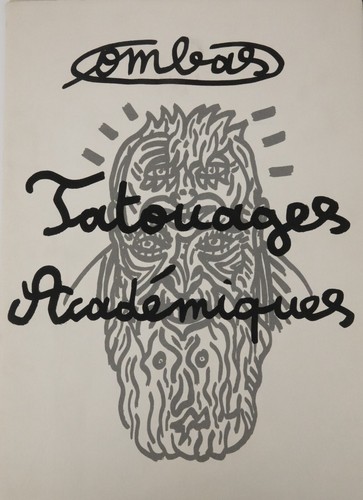 Combas
Tatouages
Académiques